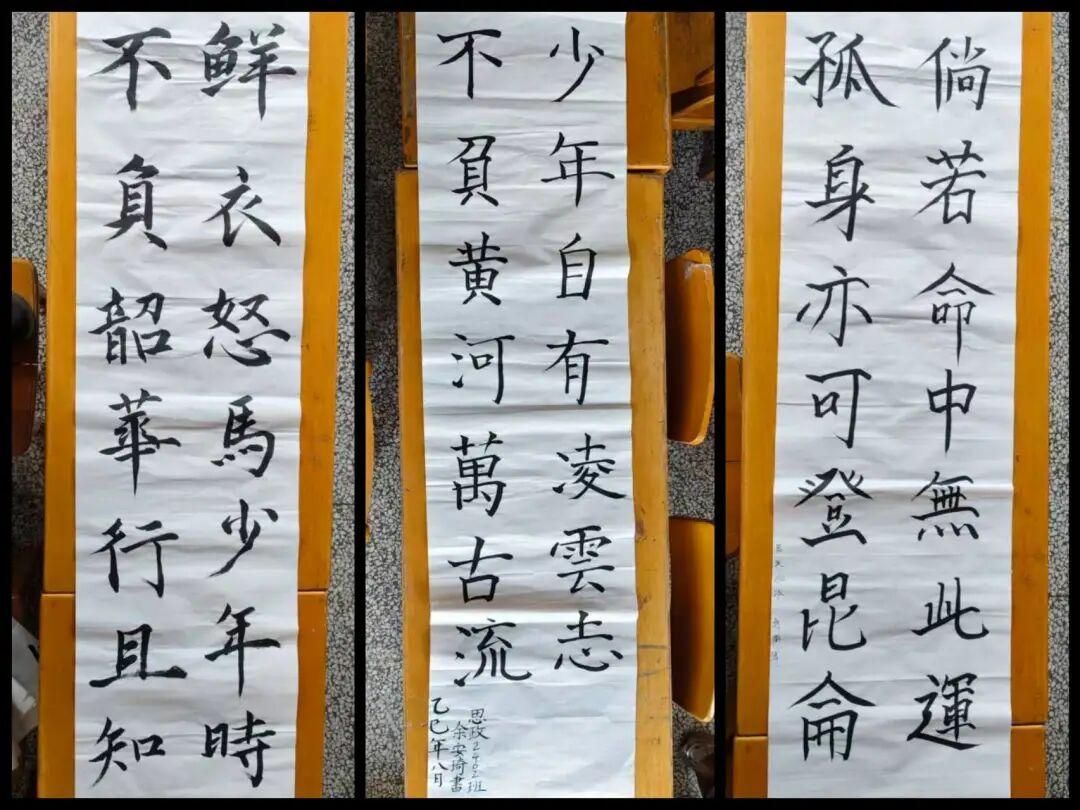 鲜衣怒馬少年時
不負韶華行且知
少年自有凌雲志
不負黄河萬古流
思政2402班
余安琦書
乙巳年八月
倘若命中無此運
孤身亦可登昆侖